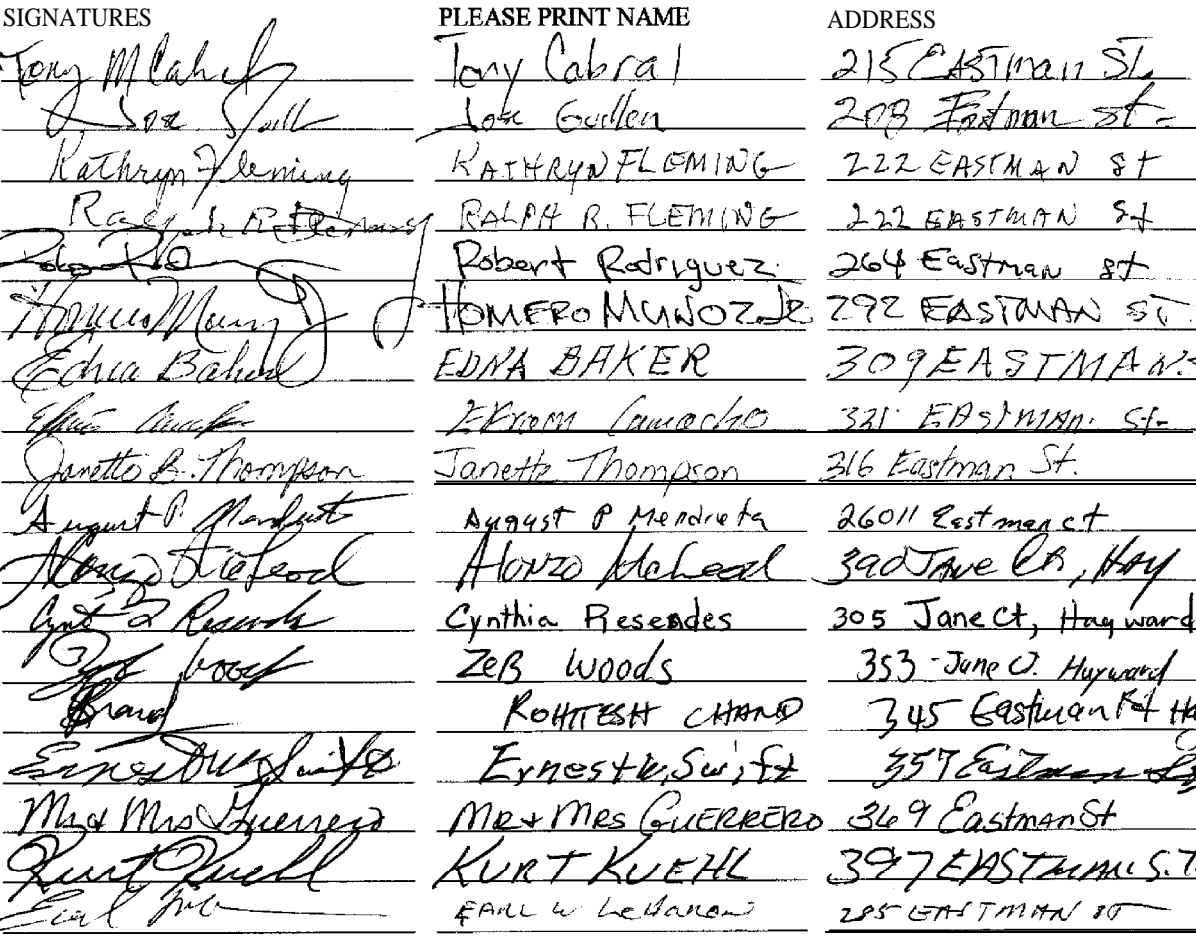 SIGNATURES PLEASE PRINT NAME ADDRESS
Tony M Cabral Tony Cabral 215 EASTman St.
Jose Jose Guillen 208 Eastman st-
Kathryn Fleming KATHRYN FLEMING 222 EASTMAN St
Ralph R. Fleming RALPH R. FLEMING 222 EASTMAN St
Robert Rodriguez 264 Eastman st
Homero Munoz Jr HOMERO MUNOZ JR 292 EASTMAN ST.
Edna Baker EDNA BAKER 309 EASTMAN
Camacho 321 EASTMAN. St-
Janette B. Thompson Janette Thompson 316 Eastman St.
August P August P Mendrieta 26011 Eastman ct
Alonzo McLeod Alonzo McLeod Jane , Hay
Cynthia Resendes 305 Jane Ct, Hayward
Zeb Woods ZeB Woods 353 - Jane Hayward
ROHITESH CHAND 345 Eastman
Ernest W Swift Ernest W, Swift 357 Eastman
Mr & Mrs Guerrero MR + MRS GUERRERO 369 Eastman St
Kurt Kuehl KURT KUEHL 397 EASTMAN S.T.
Earl EARL W 285 EASTMAN ST